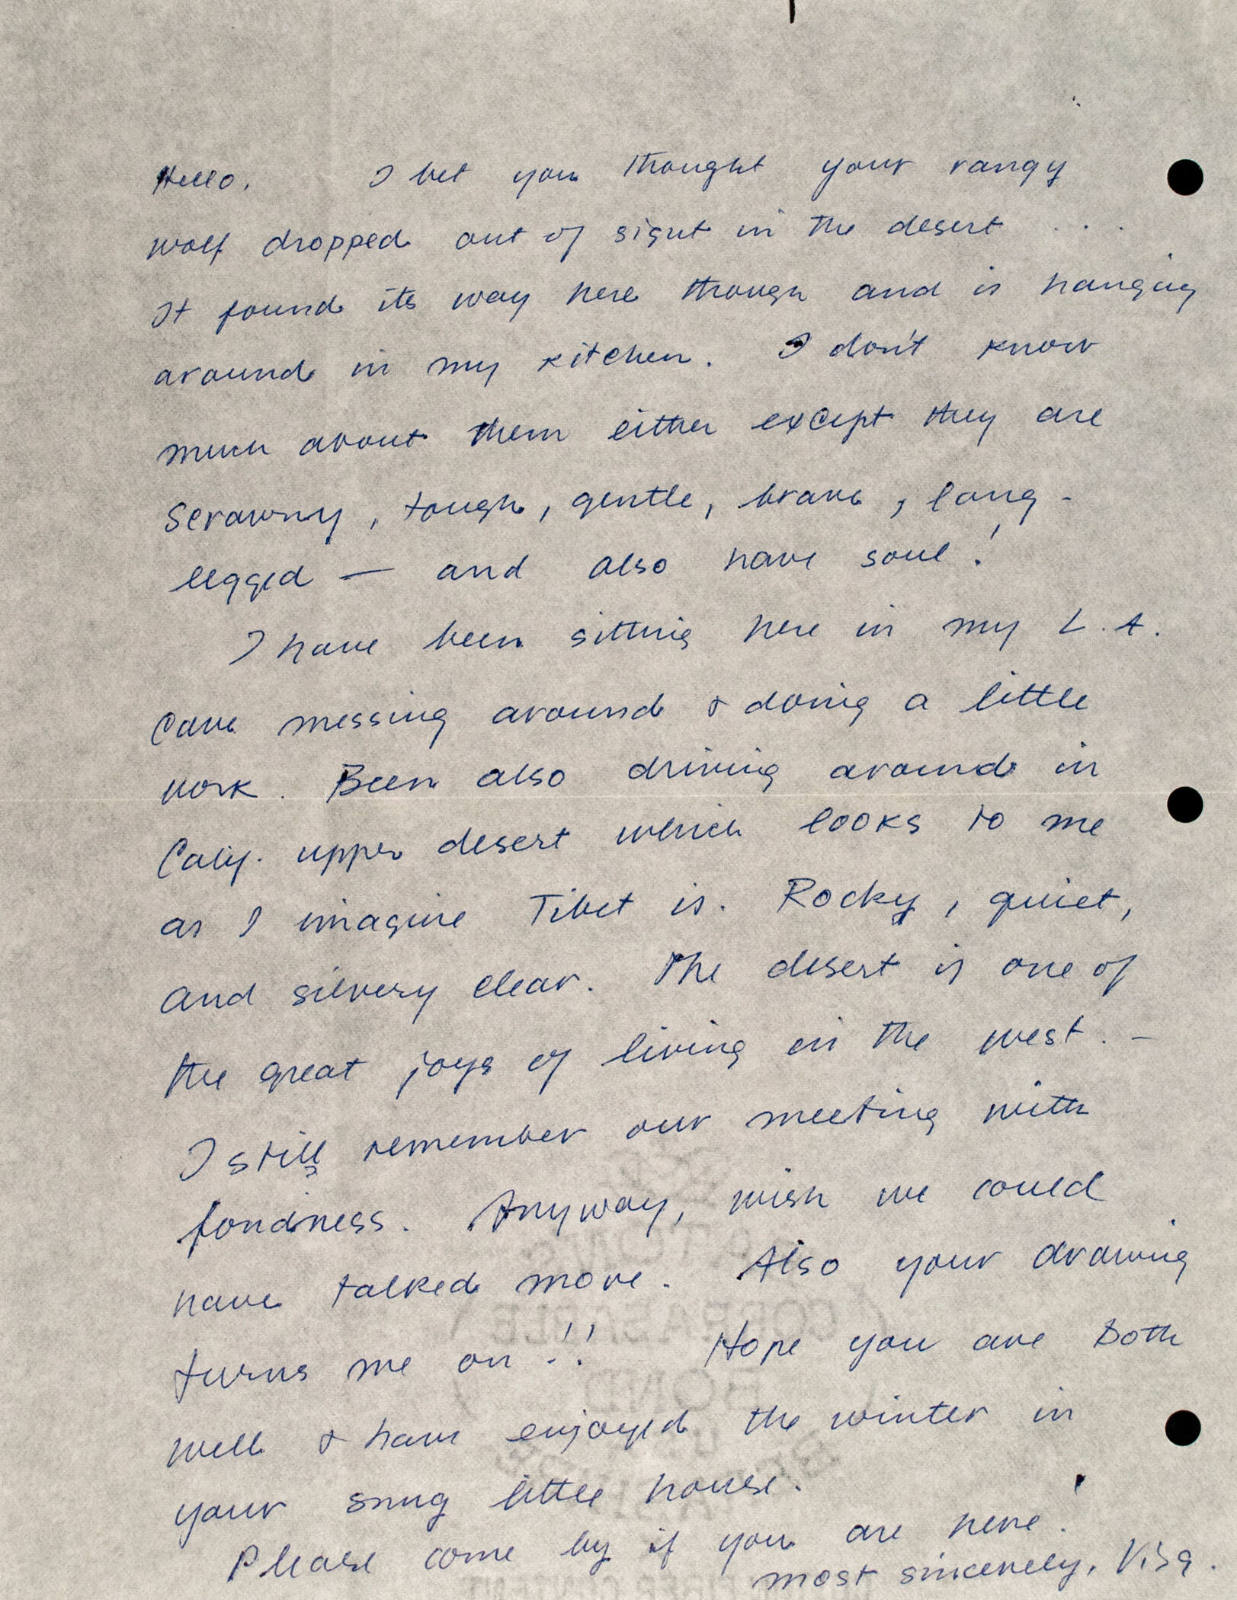 Hello. I bet you thought your rangy
wolf dropped out of sight in the desert ....
It found its way here though and is hanging
around in my kitchen. I don't know
much about them either except they are
scrawny, tough, gentle, brave, long-
legged — and also have soul!
I have been sitting here in my L.A.
cave messing around & doing a little
work. Been also driving around in
Calif. upper desert which looks to me
as I imagine Tibet is. Rocky, quiet,
and silvery clear. The desert is one of
the great joys of living in the west. —
I still remember our meeting with
fondness. Anyway, wish we could
have talked more. Also your drawing
turns me on!! Hope you are both
well & have enjoyed the winter in
your snug little house.
Please come by if you are here!
most sincerely,
EATON'S
CORRASABLE
BOND
FIBER CONTENT